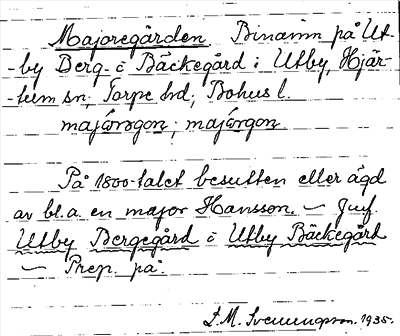 Majoregården. Binamn på Ut-
-by Berg- o Bäckegård i Utby, Hjär-
-tum sn, Torpe hd, Bohus l.
På 1800-talet besutten eller ägd
av bl.a. en major Hansson. – Jmf.
Utby Bergegård o Utby Bäckegård
– Prep. på.
L.M. Svenungsson. 1935.